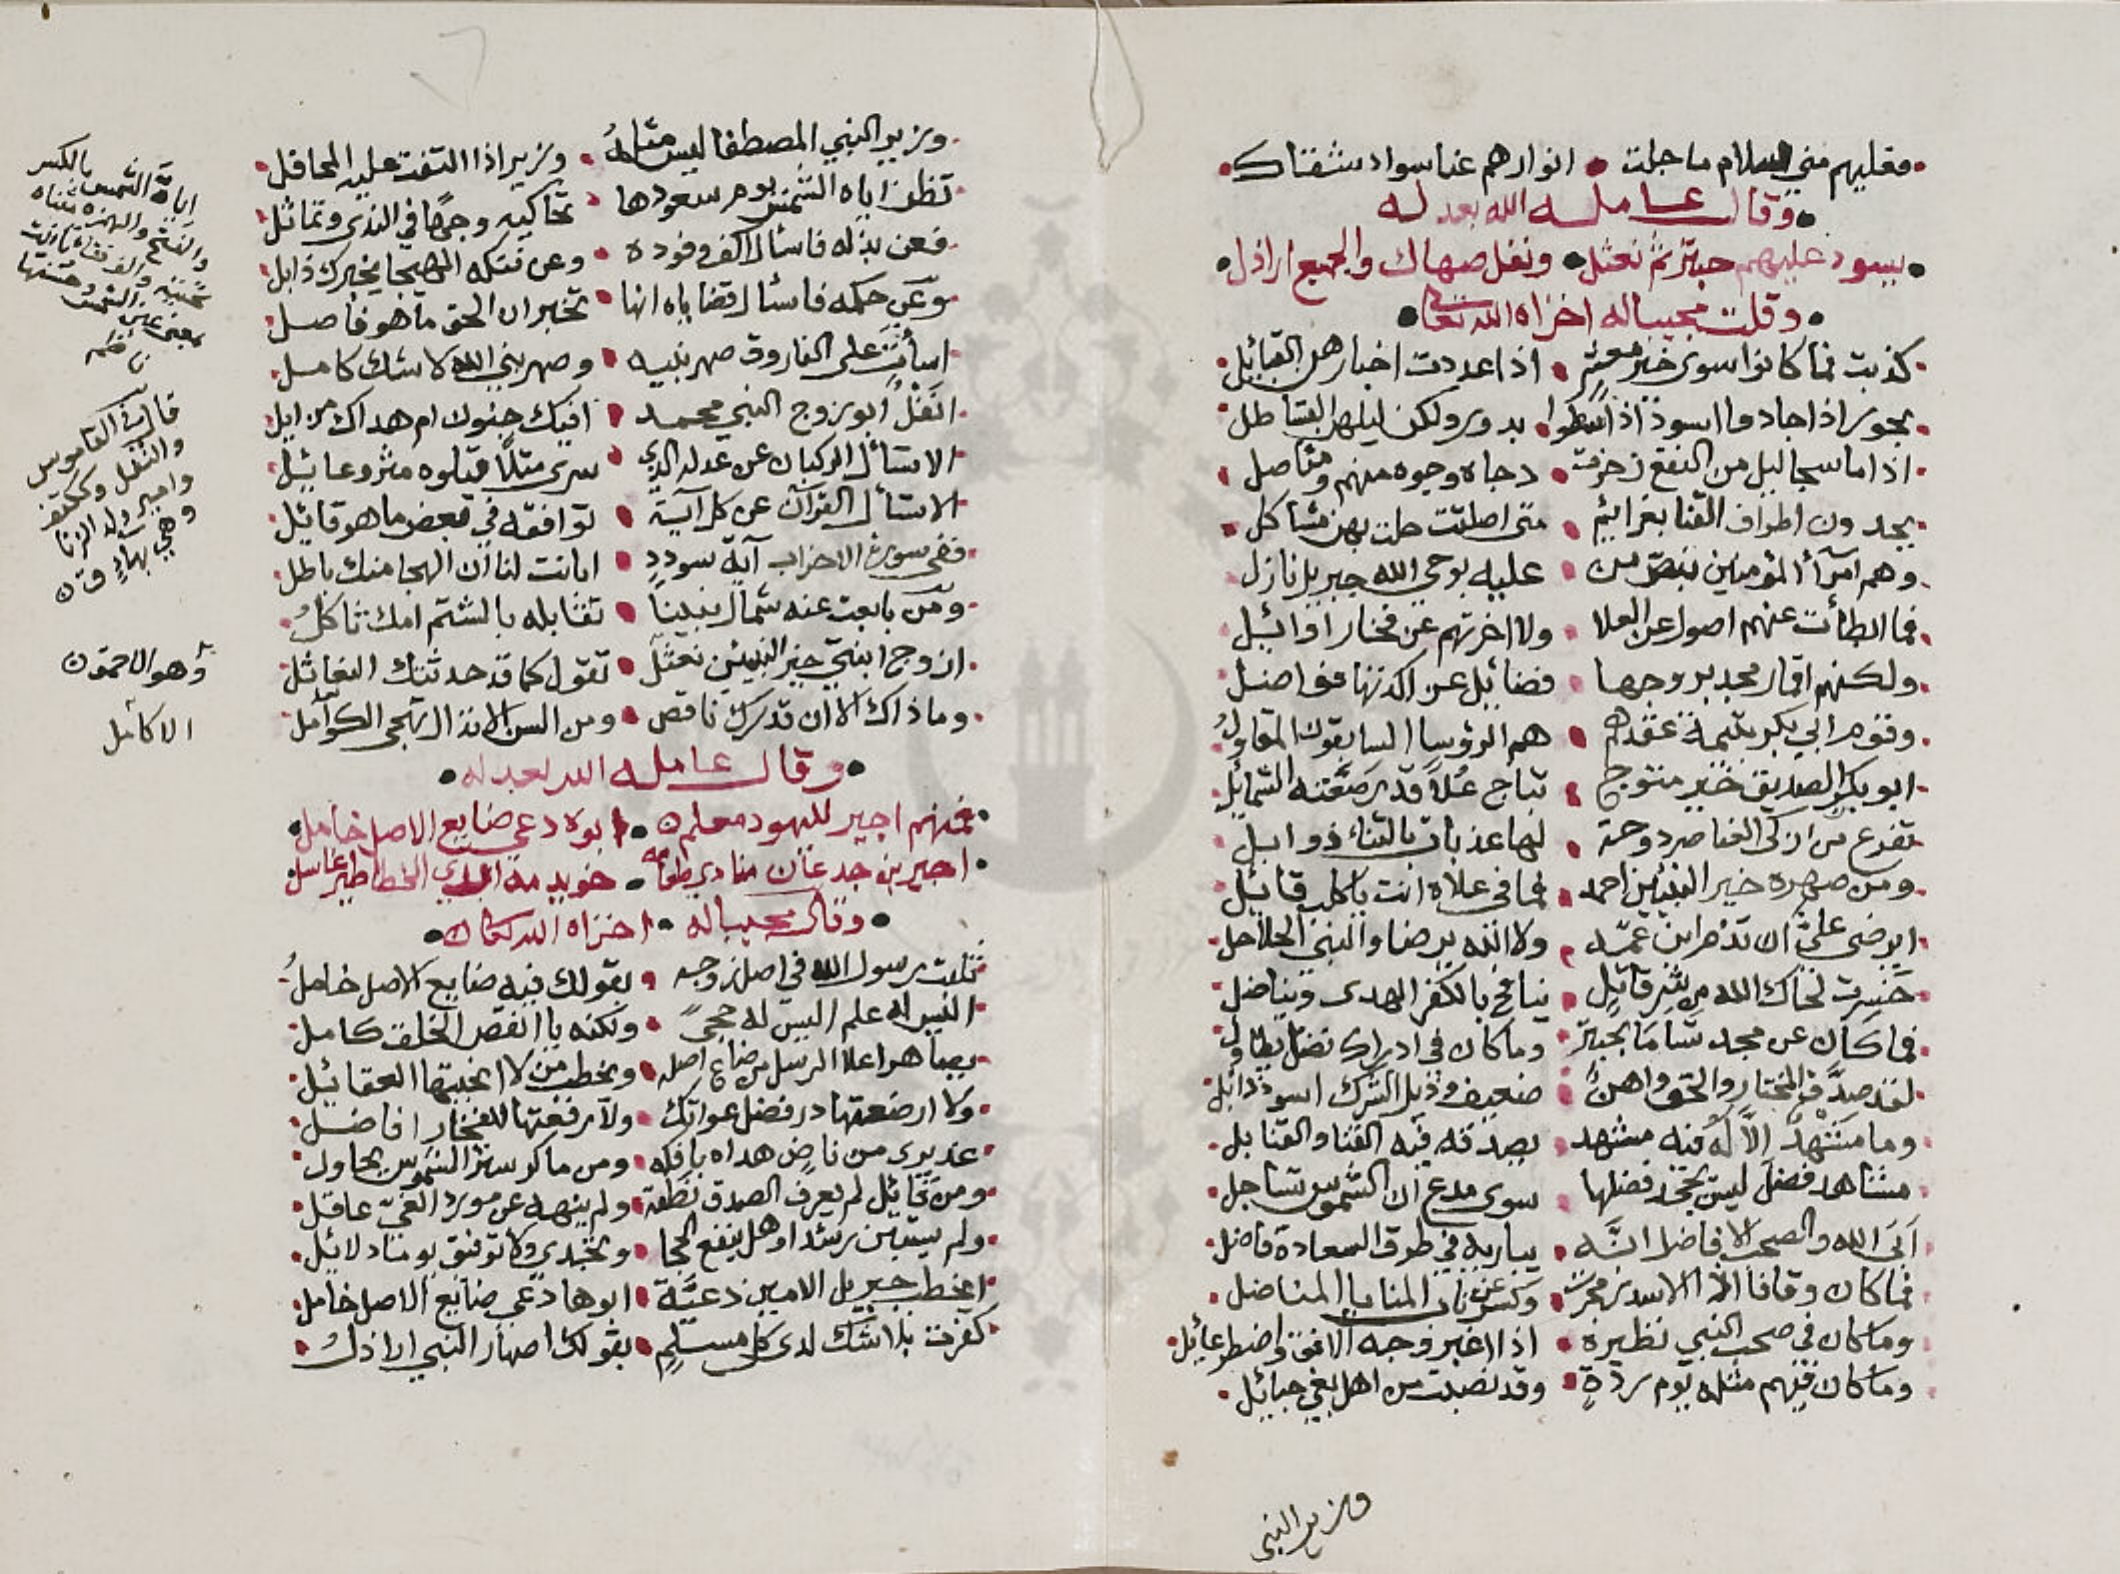 فعليهم مني السلام ما جلت • انوارهم عنا سواد
وقال عامله الله بعدله
يسود عليهم حبتر ثم نعثل • ونغل صهاك والجميع اراذل
وقلت مجيبا له اخزاه الله تعالى
كذبت فما كانوا سوى خير معشر • اذا عددت اخيارهن القبائل
بحور اذا جادوا اسود اذا سطوا • بدور ولكن ليلهن القساطل
اذا ما سجا ليل من النقع زحزحت • دجاه وجوه منهم ومناصل
يجدون اطراف القنا بعزائم • متى اصلتت حلت بهن مشاكل
وهم امرآء المؤمنين بنص من • عليه بوحي الله جبريل نازل
فما ابطأت عنهم اصول عن العلا • ولا اخرتهم عن فخار اوائل
ولكنهم اقمار مجد بروجها • فضائل عن ادركنها فواضل
وقوم ابي بكر يتيمة عقدهم • هم الرؤسا السابقون المقاول
ابو بكر الصديق خير متوج • بتاج علا قد رصعته الشمائل
تفرع من ازكى العناصر دوحة • لها عذبات بالثناء ذوابل
ومن صهره خير النبيئين احمد • فما في علاه انت يا كلب قائل
ايرضى علي ان تذم ابن عمه • ولا الله يرضا والنبي الحلاحل
خسرت لحاك الله من شر قائل • ينافح بالكفر الهدى ويناضل
فما كان عن مجد تسامى بحبتر • وما كان في ادراك فضل يطاول
لقد صدق المختار والحق واهن • ضعيف وذيل الشرك اسود ذائل
وما مشهد الا له فيه مشهد • يصدقه فيه القنا والقنابل
مشاهد فضل ليس يجحد فضلها • سوى مدع ان الشموس تساجل
ابى الله والصحب الافاضل انه • يباريه في طرق السعادة فاضل
فما كان وقافا اذا الاسد زمجرت • وكشر عن ناب المنايا المناضل
وما كان في صحب النبي نظيره • اذا اغبر وجه الافق واضطر عائل
وما كان فيهم مثله يوم ردة • وقد نصبت من اهل بغي حبائل
وزير النبي
وزير النبي المصطفا ليس مثله • وزير اذا التفت عليه المحافل
تظن اياه الشمس يوم سعودها • تحاكيه وجها في الندى وتماثل
فعن بذله فاسأل اكف وفوده • وعن فتكه الهيجا يخبرك ذابل
وعن حكمه فاسأل قضاياه انها • تخبر ان الحق ما هو فاصل
اسأت على الفاروق صهر نبيه • وصهر نبي الله لا شك كامل
انغل ابو زوج النبي محمد • افيك جنون ام هداك زايل
الا تسأل الركبان عن عدله الذي • سرى مثلا قتلوه مثر وعائل
الا تسأل القرآن عن كل آية • توافقه في بعض ما هو قائل
ففي سورة الاحزاب آية سودد • ابانت لنا ان الهجا منك باطل
ومن بايعت عنه شمال نبينا • تقابله بالشتم امك ثاكل
ازوج ابنتي خير النبيئين نعثل • تقول كما قد حدثتك النعاثل
وما ذاك الا ان قدرك ناقص • ومن السن الانذال تهجى الكوآمل
وقال عامله الله بعدله
فمنهم اجير لليهود معلم • ابوه دعي ضايع الاصل خامل
اجير بن جدعان منادي طعامه •
وقال مجيبا له • اخزاه الله تعالى
ثلبت رسول الله في اصل زوجه • بقولك فيه ضايع الاصل خامل
اليس له علم اليس له حجى • ولكنه يا انقص الخلق كامل
يصاهر اعلا الرسل من ضاع اصله • ويخطب من لا انجبتها العقائل
ولا ارضعتها در فضل عواتك • ولا رفعتها للفخار افاضل
عذيري من ناض هداه بافكه • ومن ماكر ستر الشموس يحاول
ومن قائل لم يعرف الصدق نطقه • ولم ينهه عن مورد الغي عاقل
ولم يستبن رشدا وهل ينفع الحجا • ويجدي ولا توفيق يوما دلائل
ايخطب جبريل الامين دعية • ابوها دعي ضايع الاصل خامل
كفرت بلا شك لدى كل مسلم • بقولك اصهار النبي اراذل
اياة الشمس بالكسر
والفتح
بمعنى عين الشمس وحسنها
ناظمه
قال في القاموس
والنغل وككتف
وامير ولد الزنا
وهي بهاء
وهو الاحمق
الا كامل